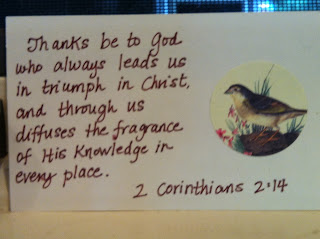 Thanks be to God
who always leads us
in triumph in Christ,
and through us
diffuses the fragrance
of His Knowledge in
every place.
2 Corinthians 2:14